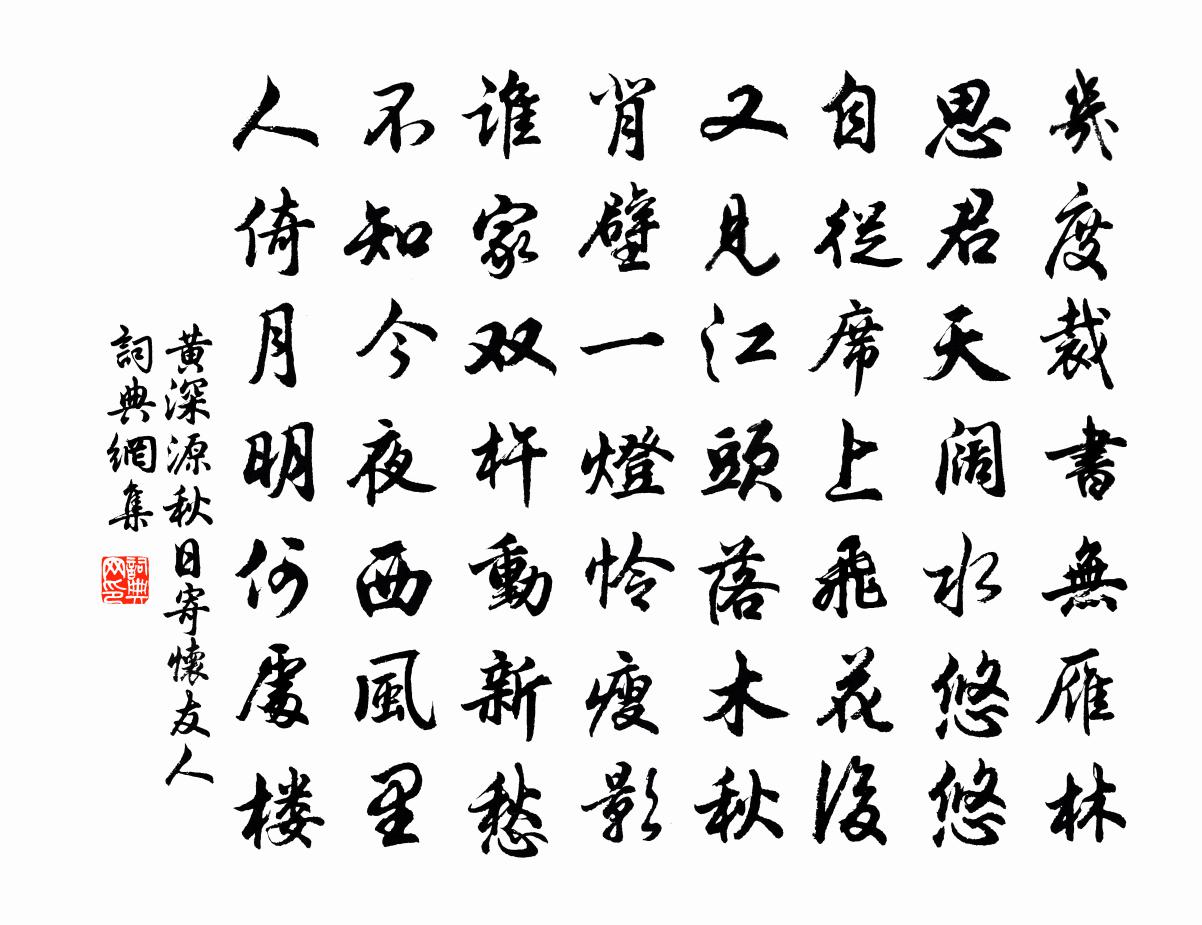 幾度裁書無雁林
思君天阔水悠悠
自從席上飛花後
又見江頭落木秋
肖壁一燈怜瘦影
谁家双杵動新愁
不知今夜西風里
人倚月明何處楼
黄深源秋日寄懷友人
詞典網集
詞典网印